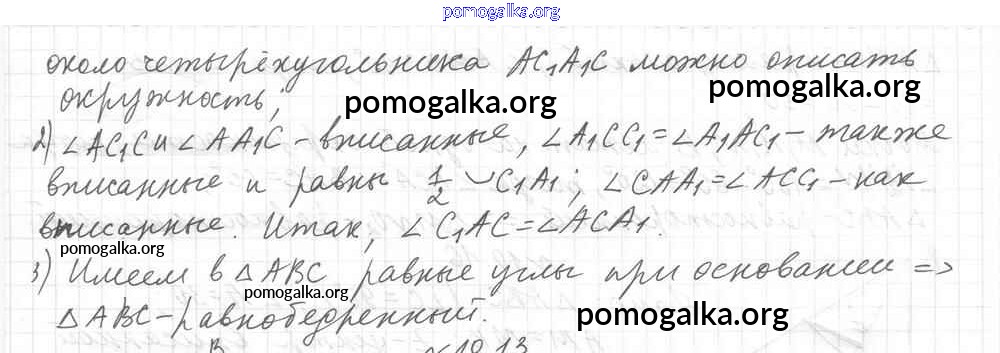 pomogalka.org
около четырёхугольника AC₁A₁C можно описать
pomogalka.org
окружность;
pomogalka.org
2) ∠AC₁C и ∠AA₁C - вписанные, ∠A₁CC₁ = ∠A₁AC₁ - также
вписанные и равны 1/2 ◡C₁A₁; ∠CAA₁ = ∠ACC₁ - как
вписанные. Итак, ∠C₁AC = ∠ACA₁.
pomogalka.org
3) Имеем в △ABC равные углы при основании =>
pomogalka.org
△ABC - равнобедренный.
pomogalka.org